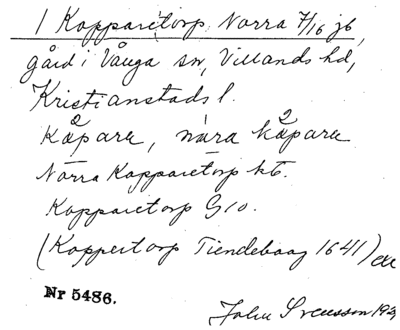 1 Kopparetorp, Norra 7/16 jb,
gård i Vånga sn, Villands hd,
Kristianstads l.
kåpara, nara kåpara
Norra Kopparetorp kb.
Kopparetorp G10.
(Koppertorp Tiendebaag 1641)
Nr 5486.
John Svensson